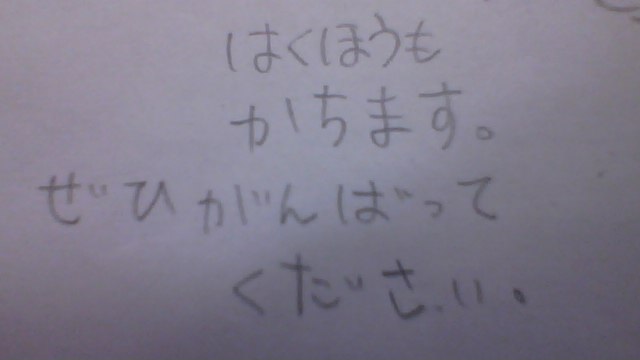 はくほうも
かちます。
ぜひがんばって
ください。